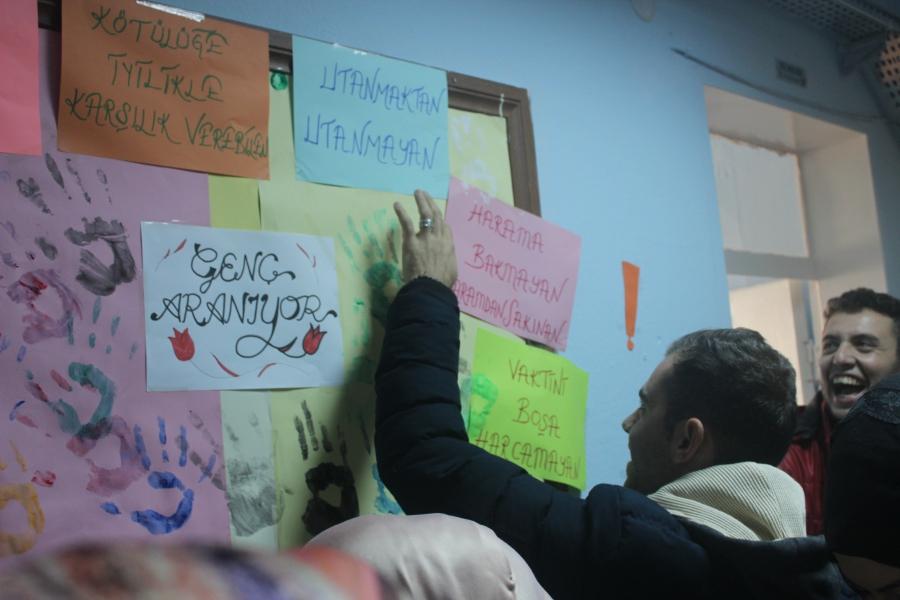 KÖTÜLÜĞE
İYİLİKLE
KARŞILIK VEREBİLEN
UTANMAKTAN
UTANMAYAN
HARAMA
BAKMAYAN
HARAMDAN SAKINAN
GENÇ
ARANIYOR
VAKTİNİ
BOŞA
HARCAMAYAN
!